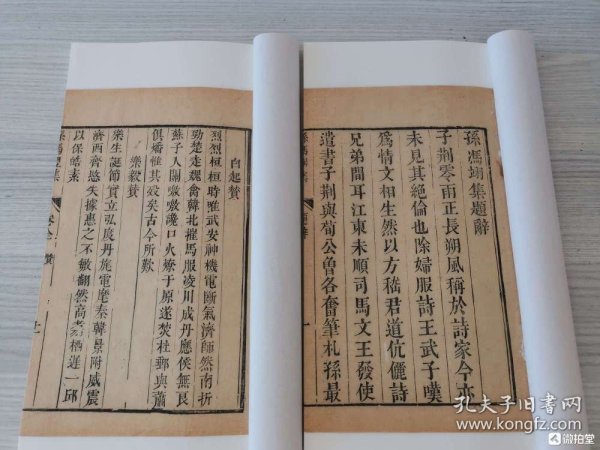 孫馮翊集題辭
子荆零雨正長朔風稱於詩家今亦
未見其絕倫也除婦服詩王武子嘆
爲情文相生然以方嵇君道伉儷詩
兄弟間耳江東未順司馬文王發使
遺書子荆與荀公魯各奮筆札孫最
白起贊
烈烈桓桓時唯武安神機電斷氣濟師然南折
勁楚走魏禽韓北摧馬服凌川成丹應侯無良
蘇子入關噭噭讒口火燎于原遂焚杜郵與蕭
俱燔惟其殁矣古今所歎
樂毅贊
樂生誕節實立弘度丹旄電麾秦韓景附威震
濟西齊愍失據惠之不敏翻然高舉栖遲一邱
以保皓素
孔夫子旧书网
www.kongfz.com
微拍堂